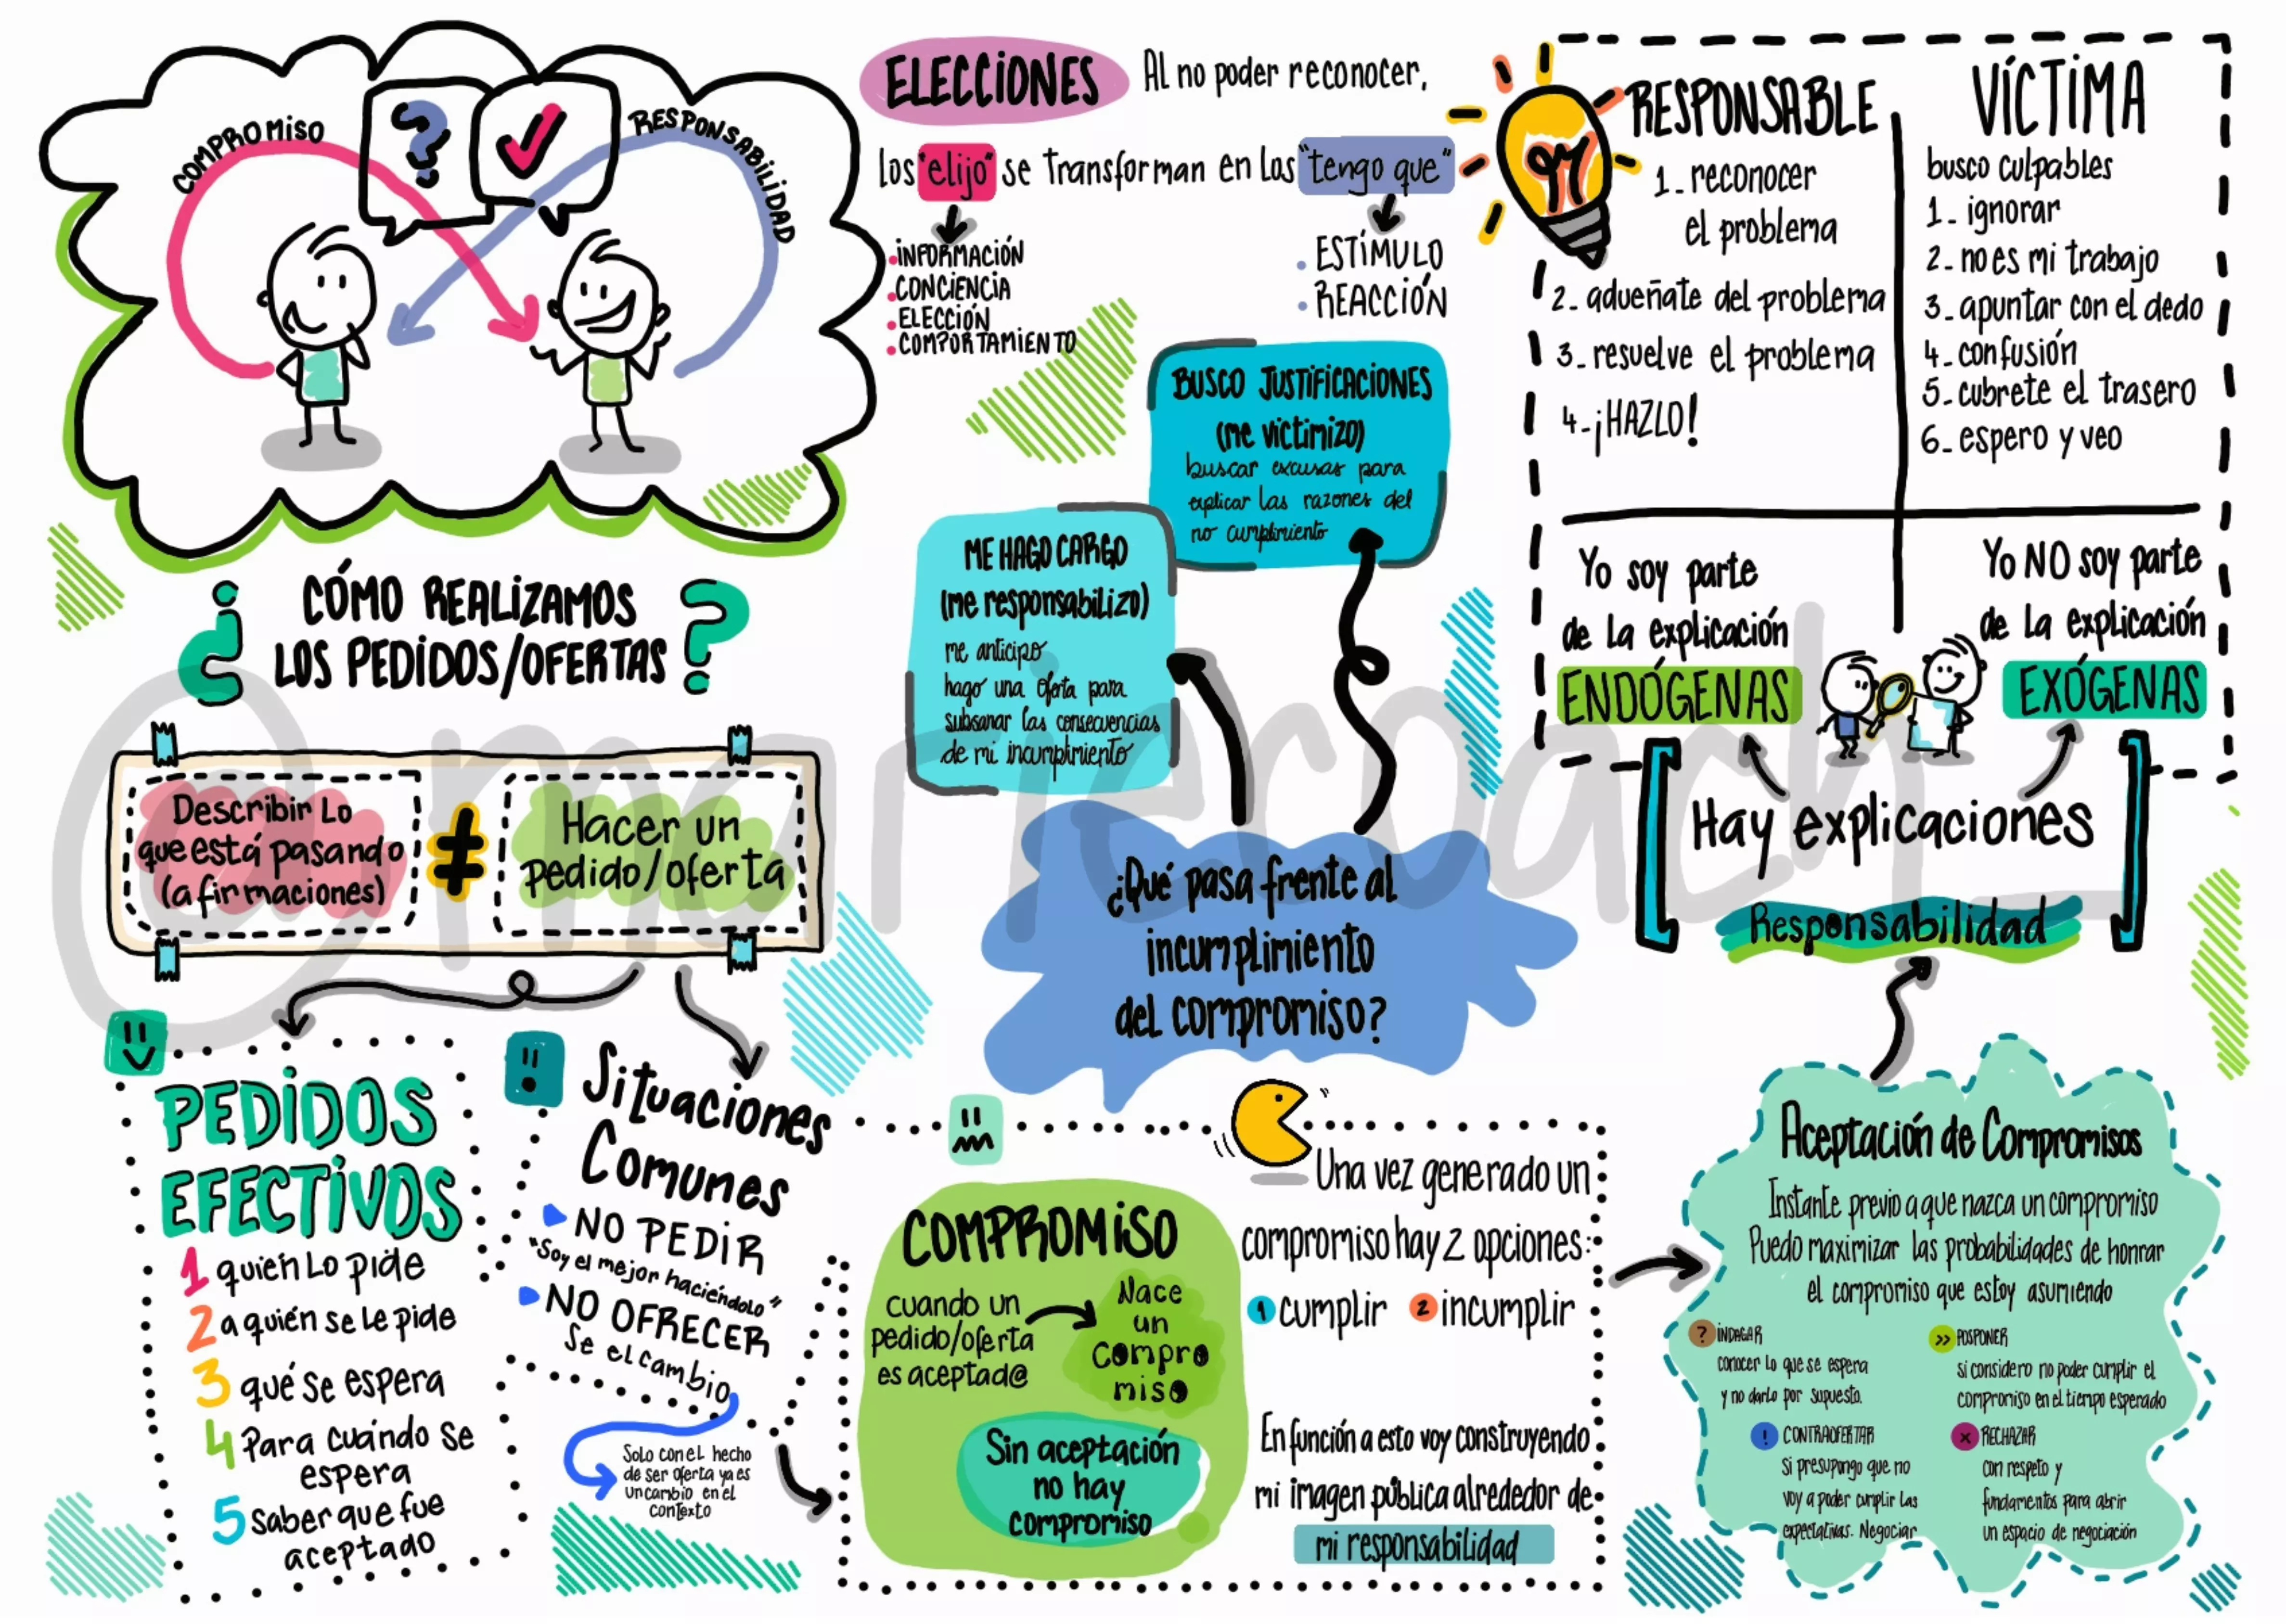 COMPROMISO
RESPONSABILIDAD
ELECCIONES
Al no poder reconocer,
los "elijo" se transforman en los "tengo que"
INFORMACIÓN
CONCIENCIA
ELECCIÓN
COMPORTAMIENTO
ESTÍMULO
REACCIÓN
RESPONSABLE
1- reconocer
el problema
2- adueñate del problema
3- resuelve el problema
4- ¡HAZLO!
VÍCTIMA
busco culpables
1- ignorar
2- no es mi trabajo
3- apuntar con el dedo
4- confusión
5- cubrete el trasero
6- espero y veo
Yo soy parte
de la explicación
ENDÓGENAS
Yo NO soy parte
de la explicación
EXÓGENAS
Hay explicaciones
Responsabilidad
BUSCO JUSTIFICACIONES
(me victimizo)
buscar excusas para
explicar las razones del
no cumplimiento
ME HAGO CARGO
(me responsabilizo)
me anticipo
hago una oferta para
subsanar las consecuencias
de mi incumplimiento
¿Qué pasa frente al
incumplimiento
del compromiso?
¿CÓMO REALIZAMOS
LOS PEDIDOS/OFERTAS?
Describir lo
que está pasando
(afirmaciones)
≠
Hacer un
pedido/oferta
@mariecoach_
PEDIDOS
EFECTIVOS
1 quién lo pide
2 a quién se le pide
3 qué se espera
4 Para cuándo se
espera
5 Saber que fue
aceptado
Situaciones
Comunes
NO PEDIR
"Soy el mejor haciéndolo"
NO OFRECER
Se el cambio
Solo con el hecho
de ser oferta ya es
un cambio en el
contexto
COMPROMISO
cuando un
pedido/oferta
es aceptad@
Nace
un
compro
miso
Sin aceptación
no hay
compromiso
Una vez generado un
compromiso hay 2 opciones:
1 cumplir 2 incumplir
En función a esto voy construyendo
mi imagen pública alrededor de
mi responsabilidad
Aceptación de Compromisos
Instante previo a que nazca un compromiso
Puedo maximizar las probabilidades de honrar
el compromiso que estoy asumiendo
? INDAGAR
conocer lo que se espera
y no darlo por supuesto.
>> POSPONER
si considero no poder cumplir el
compromiso en el tiempo esperado
! CONTRAOFERTAR
Si presupongo que no
voy a poder cumplir las
expectativas. Negociar
x RECHAZAR
con respeto y
fundamentos para abrir
un espacio de negociación